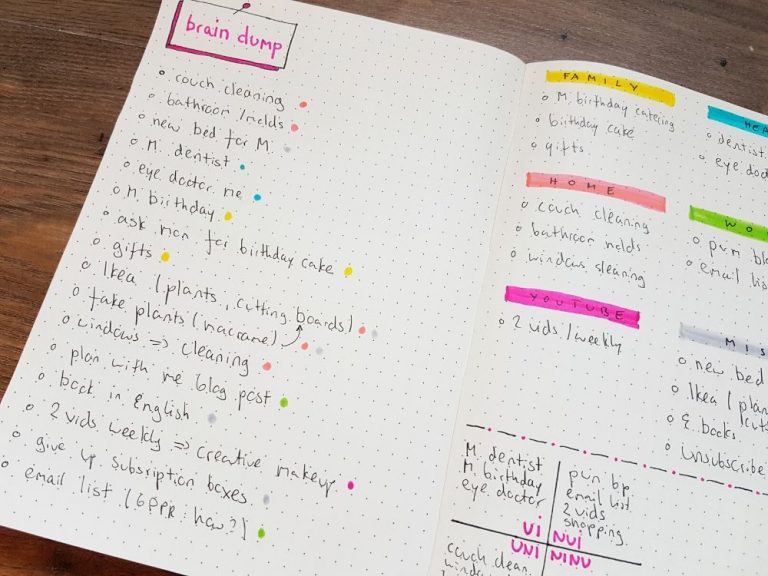 brain dump
couch cleaning
bathroom/molds
new bed for M.
M. dentist
eye doctor me
M. birthday
ask mom for birthday cake
gifts
Ikea (plants, cutting boards)
fake plants (macrame)
windows => cleaning
plan with me blog post
book in English
2 vids weekly => creative makeup
give up subscription boxes
email list (GDPR: how?)
FAMILY
M. birthday catering
birthday cake
gifts
HOME
couch cleaning
bathroom molds
windows cleaning
YOUTUBE
2 vids/weekly
HEA
dentist
eye doc
WO
pwm blo
email lis
MIS
new bed
Ikea (plan
(cutt
E. books
Unsubscribe
M. dentist
M. birthday
eye doctor
UI
pwm bp.
email list
2 vids
shopping
NUI
UNI
couch clean.
window
NINU